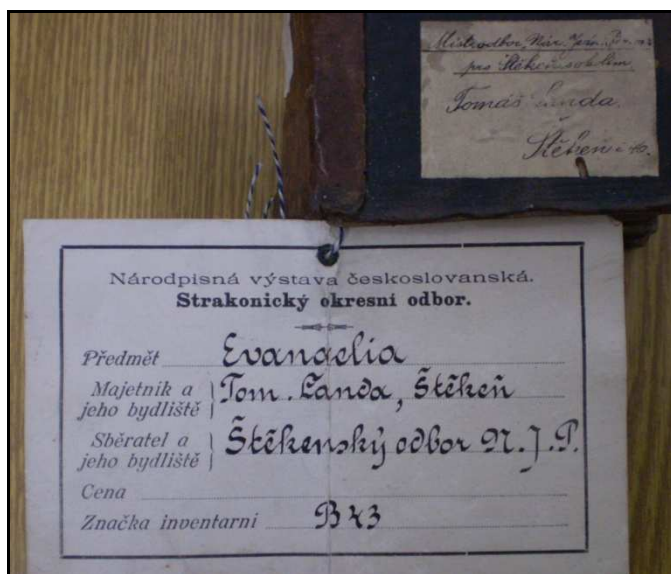 Místní odbor Nár. Jedn. Poš.
pro Štěkeň a okolím
Tomáš Landa
Štěkeň č 40.
Národpisná výstava českoslovanská.
Strakonický okresní odbor.
Předmět Evangelia
Majetník a jeho bydliště } Tom. Landa, Štěkeň
Sběratel a jeho bydliště } Štěkenský odbor N. J. P.
Cena
Značka inventarní B 43